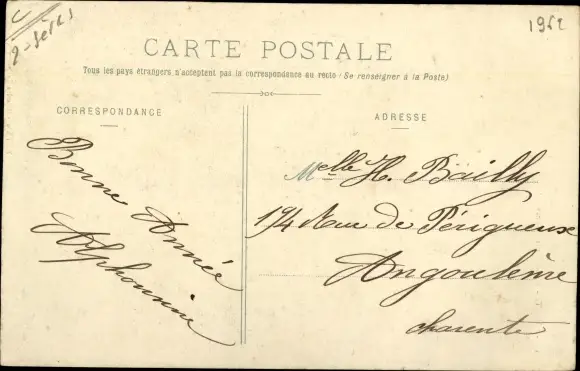 2-Sèvres
1962
CARTE POSTALE
Tous les pays étrangers n'acceptent pas la correspondance au recto (Se renseigner à la Poste)
CORRESPONDANCE
Bonne Année
Alphonsine
ADRESSE
Melle H. Bailly
194 Rue de Périgueux
Angoulème
charente